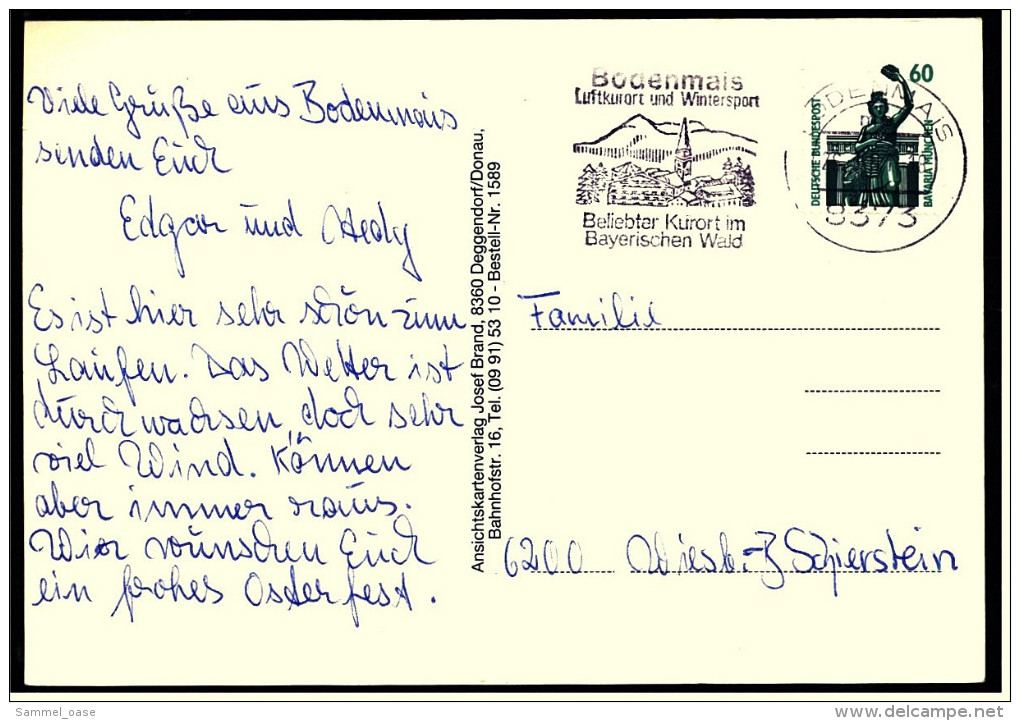 Viele Grüße aus Bodenmais
senden Euch
Edgar und Hedy
Es ist hier sehr schön zum
Laufen. Das Wetter ist
durchwachsen, doch sehr
viel Wind. Können
aber immer raus.
Wir wünschen Euch
ein frohes Osterfest.
Ansichtskartenverlag Josef Brand, 8360 Deggendorf/Donau,
Bahnhofstr. 16, Tel. (09 91) 53 10 - Bestell-Nr. 1589
Bodenmais
Luftkurort und Wintersport
Beliebter Kurort im
Bayerischen Wald
BODENMAIS
8373
60
DEUTSCHE BUNDESPOST
BAVARIA MÜNCHEN
Familie
6200 Wiesb.-Schierstein
Sammel_oase